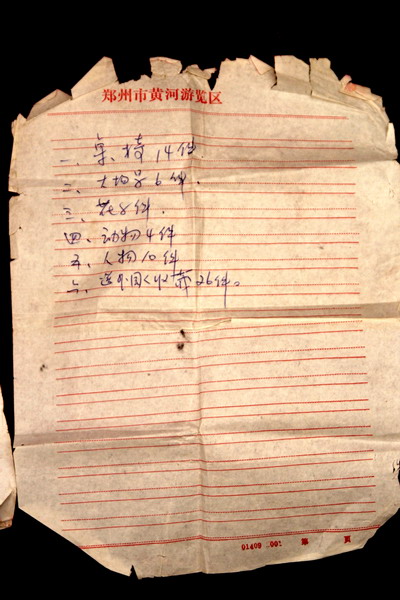 郑州市黄河游览区
一、桌、椅 14件
二、大 6件.
三、花8件.
四、动物4件
五、人物10件
六、送外国 26件。
01409 .001 第 页